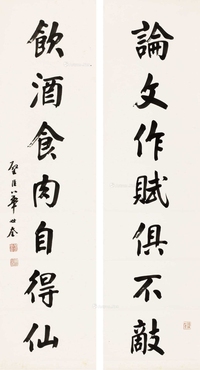 論文作賦俱不敵
飲酒食肉自得仙
華世奎